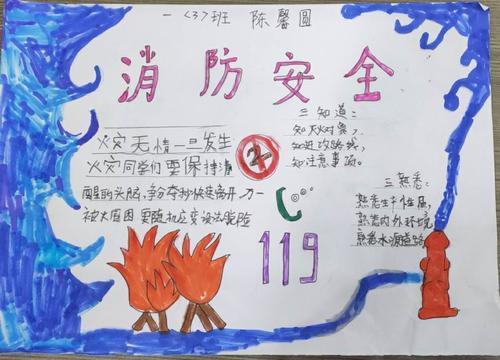 一〈3〉班 陈馨圆
消防安全
火灾无情一旦发生
火灾同学们要保持清
醒的头脑,争分夺秒快速离开万一
被大困 要随机应变设法脱险
三知道:
知灭火对象,
知进攻路线,
知注意事项。
三熟悉:
熟悉性属,
熟悉内外环境
熟悉水源道路
119